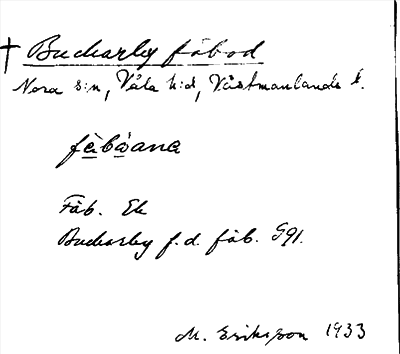 † Buckarby fäbod
Nora s:n, Våla h:d, Västmanlands l.
fä̀bòana
Fäb. Ek
Buckarby f.d. fäb. G91.
M. Eriksson 1933